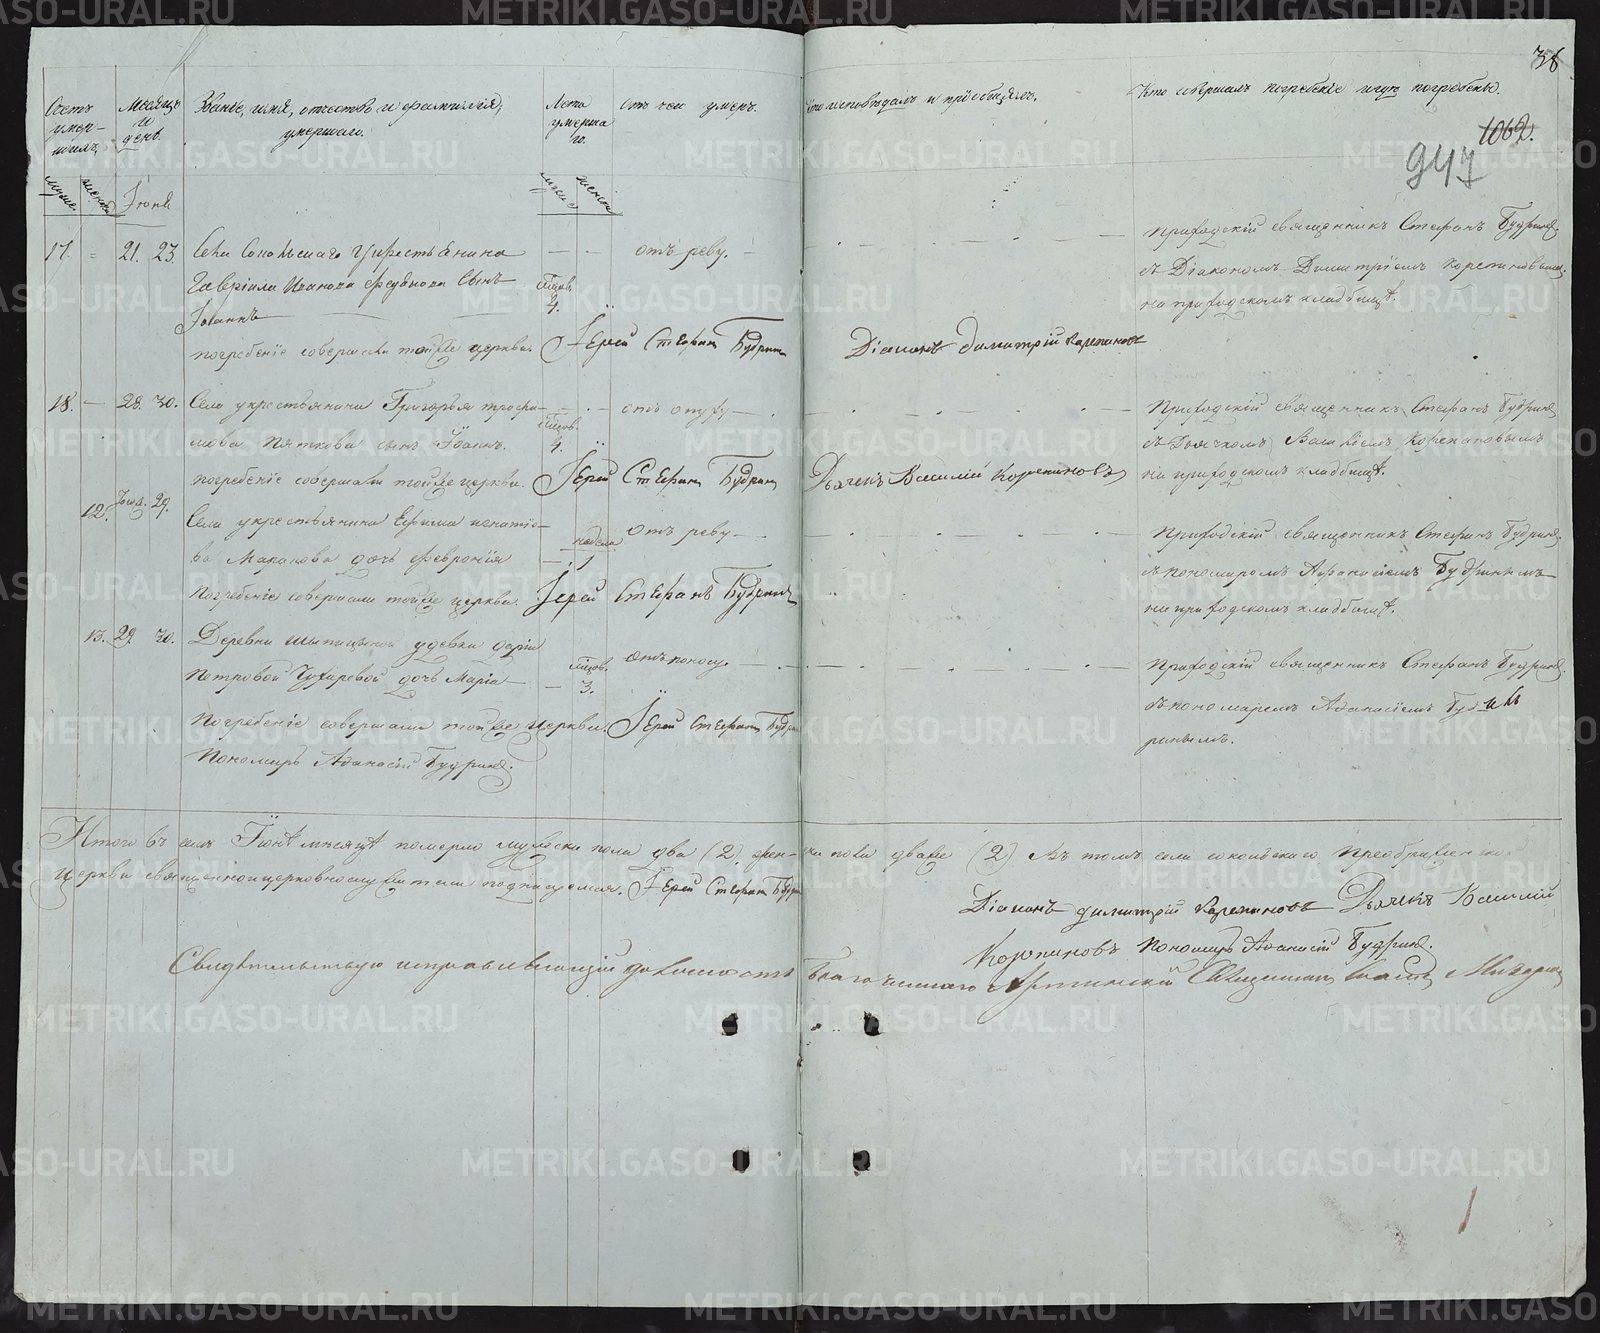 38
Счетъ умер-шихъ
Месяцъ и день
Званіе, имя, отчество и фамилія, умершаго.
Лета умершаго.
отъ чего умеръ.
Кто исповѣдалъ и пріобщалъ.
Кто совершалъ погребеніе и гдѣ погребены.
1062.
947
мужеска
женска
Іюня
мужес
женска
17. 21. 23. Села Сокольскаго Христьянина — — отъ реву.
Гавріила Иванова сынъ месяцов. 4.
Іоаннъ
погребеніе совершали тойже церкви Іерей Стефанъ Будринъ Діаконъ Димитрій Корепановъ
Приходскій священникъ Стефанъ Будринъ
съ Діакономъ Димитріемъ Корепановымъ
на приходскомъ кладбищѣ.
18. — 28. 30. Села крестьянина Григорья Трофи-
мова Пяткова сынъ Іоаннъ. месяцов. 4.
погребеніе совершали тойже церкви. Іерей Стефанъ Будринъ Дьячекъ Василій Корепановъ
Приходскій священникъ Стефанъ Будринъ
съ Дьячкомъ Василіемъ Корепановымъ
на приходскомъ кладбищѣ.
12. 29. Села крестьянина Ефима Игнатіе-
ва Макарова дочь Февронія неделя 1 отъ реву
Погребеніе совершали тойже церкви. Іерей Стефанъ Будринъ
Приходскій священникъ Стефанъ Будринъ
съ пономаромъ Афанасіемъ Будринымъ
на приходскомъ кладбищѣ.
13. 29. 30. Деревни вдовки Дарьи
Петровой дочь Марія месяцов. 3. отъ поносу.
Погребеніе совершали тойже церкви. Іерей Стефанъ Будринъ
Пономаръ Афанасій Будринъ.
Приходскій священникъ Стефанъ Будринъ
съ пономаремъ Афанасіемъ Буд-
ринымъ.
Итого въ семъ Іюнѣ месяцѣ померло мужеска пола два (2), жен-ска пола двѣже (2) Въ томъ села Сокольскаго Преображенско-
церкви священноцерковнослужители подписуемся. Іерей Стефанъ Будринъ
Діаконъ Димитрій Корепановъ Дьячекъ Василій
Корепановъ Пономаръ Афанасій Будринъ.
Свидѣтельствую исправляющій должность Благочиннаго Артинскій Священникъ
METRIKI.GASO-URAL.RU